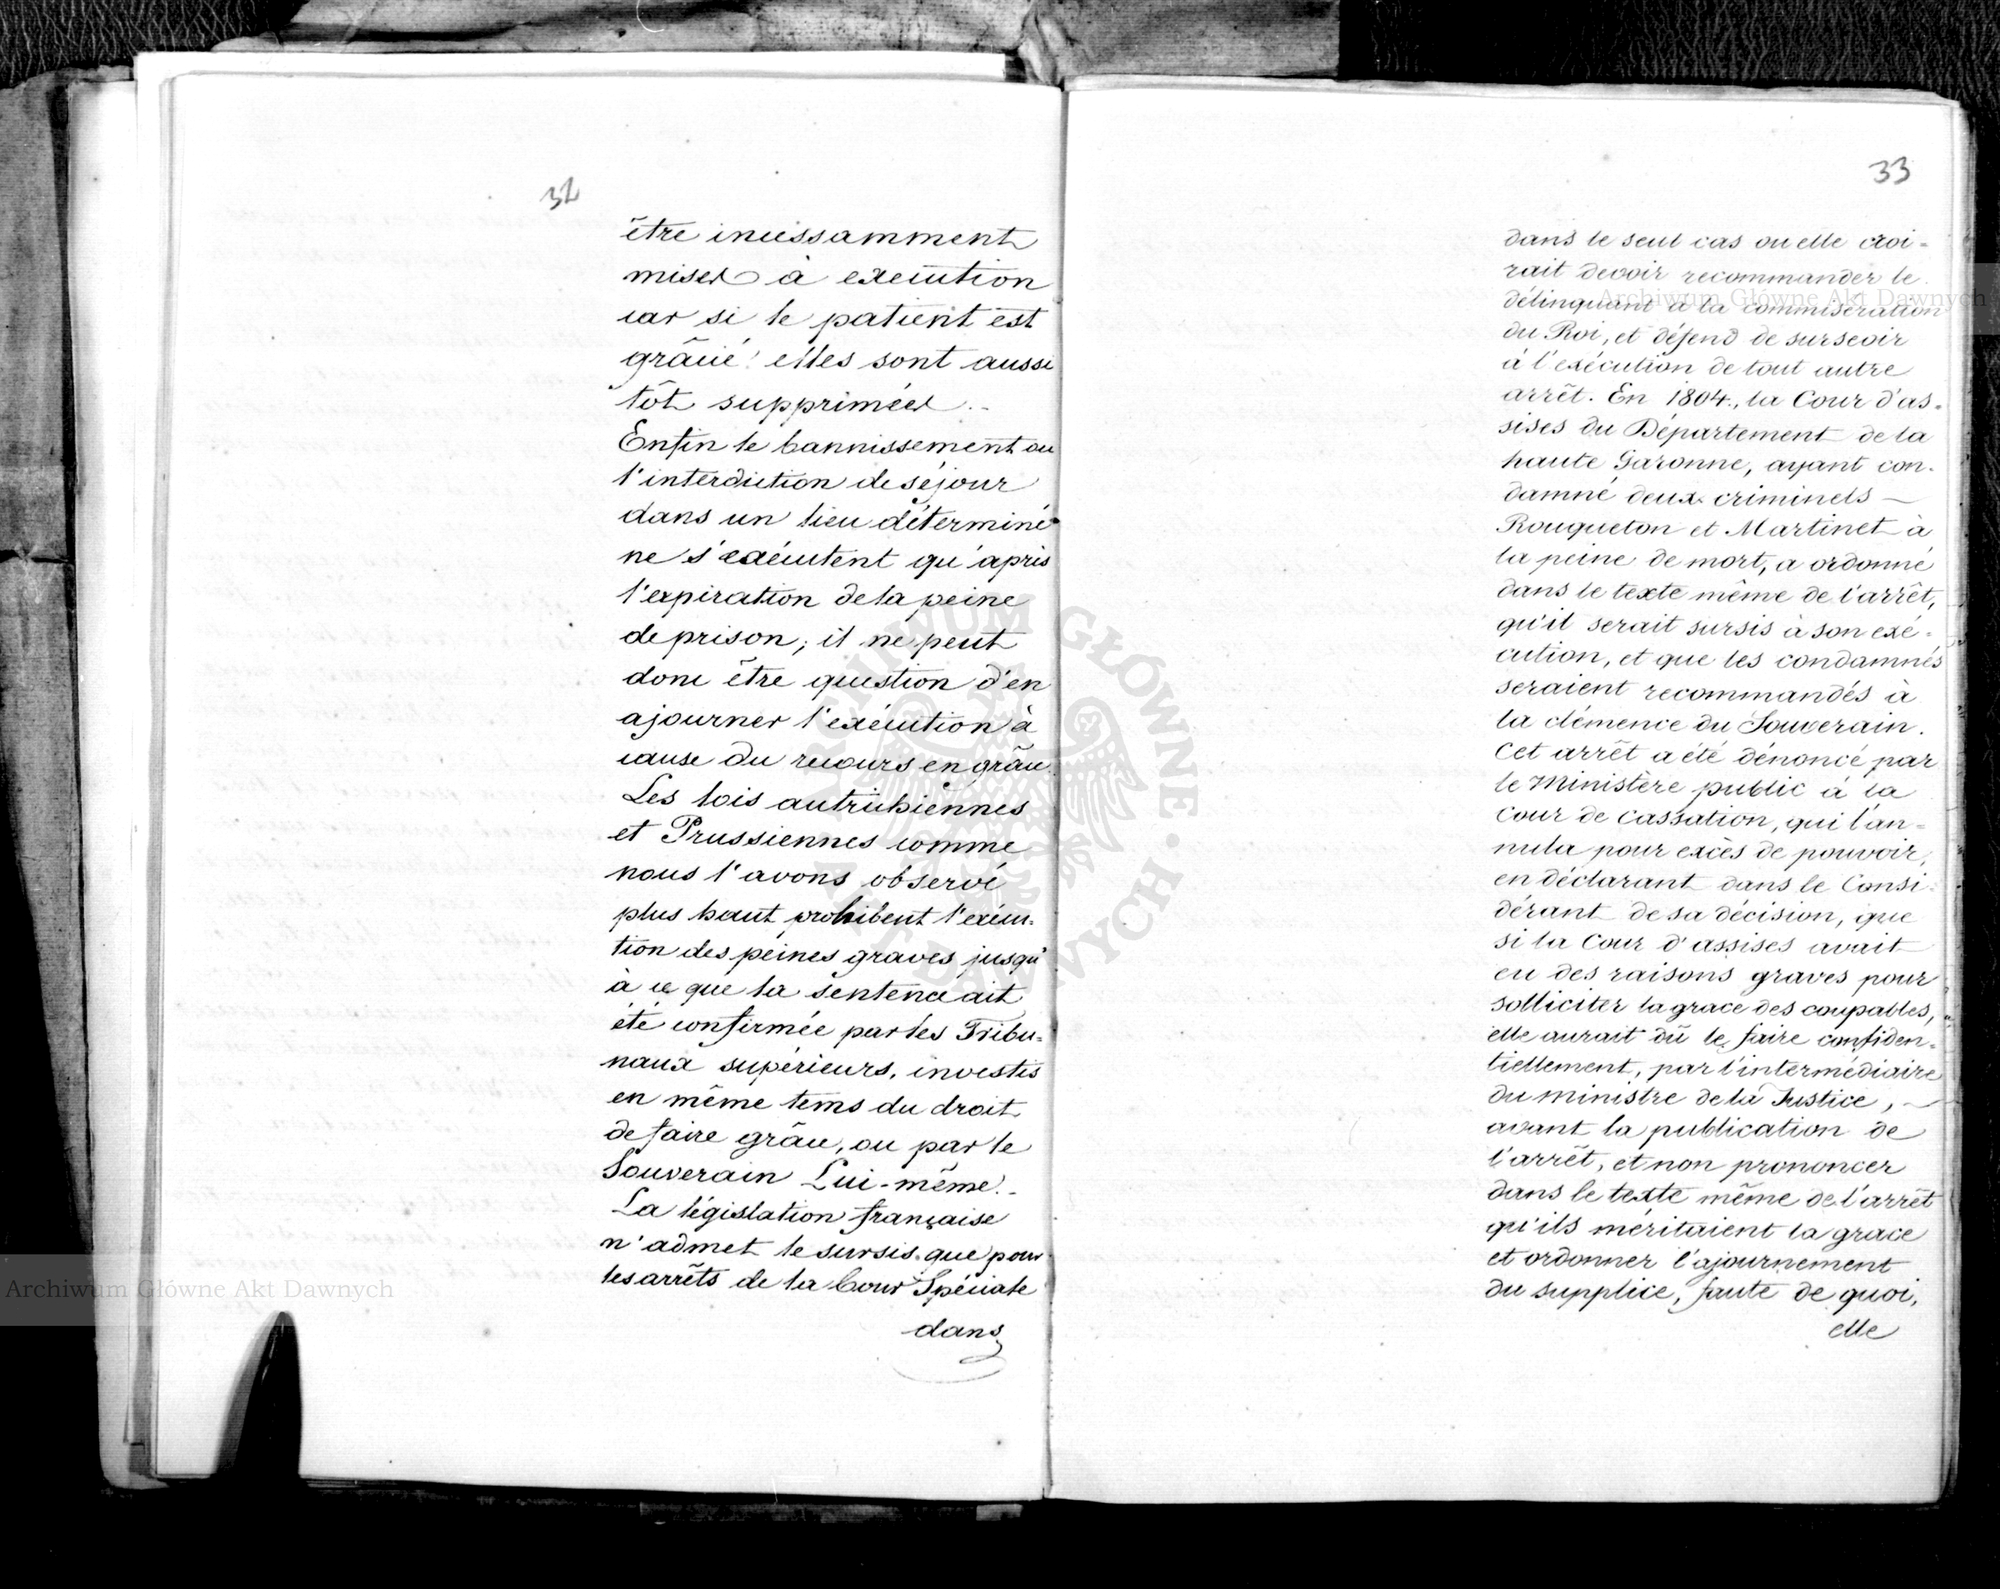 32
être incessamment
mises à execution
car si le patient est
grâcié! elles sont aussi
tôt supprimées.
Enfin le bannissement ou
l'interdiction de séjour
dans un lieu déterminé
ne s'exécutent qu'après
l'expiration de la peine
de prison; il ne peut
donc être question d'en
ajourner l'exécution à
cause du recours en grâce.
Les lois autrichiennes
et Prussiennes comme
nous l'avons observé
plus haut prohibent l'exécu-
tion des peines graves jusqu'
à ce que la sentence ait
été confirmée par les Tribu-
naux supérieurs, investis
en même tems du droit
de faire grâce, ou par le
Souverain Lui-même.
La législation française
n'admet le sursis que pour
les arrêts de la Cour Spéciale
dans
33
dans le seul cas ou elle croi-
rait devoir recommander le
délinquant à la commisération
du Roi, et défend de surseoir
à l'exécution de tout autre
arrêt. En 1804., la Cour d'as-
sises du Département de la
haute Garonne, ayant con-
damné deux criminels —
Rouqueton et Martinet à
la peine de mort, a ordonné
dans le texte même de l'arrêt,
qu'il serait sursis à son exé-
cution, et que les condamnés
seraient recommandés à
la clémence du Souverain.
Cet arrêt a été dénoncé par
le Ministère public à la
Cour de Cassation, qui l'an-
nula pour excès de pouvoir,
en déclarant dans le Consi-
dérant de sa décision, que
si la Cour d'assises avait
eu des raisons graves pour
solliciter la grace des coupables,
elle aurait dû le faire confiden-
tiellement, par l'intermédiaire
du ministre de la Justice, —
avant la publication de
l'arrêt, et non prononcer
dans le texte même de l'arrêt
qu'ils méritaient la grace
et ordonner l'ajournement
du supplice, faute de quoi,
elle
Archiwum Główne Akt Dawnych
Archiwum Główne Akt Dawnych
ARCHIWUM GŁÓWNE AKT DAWNYCH